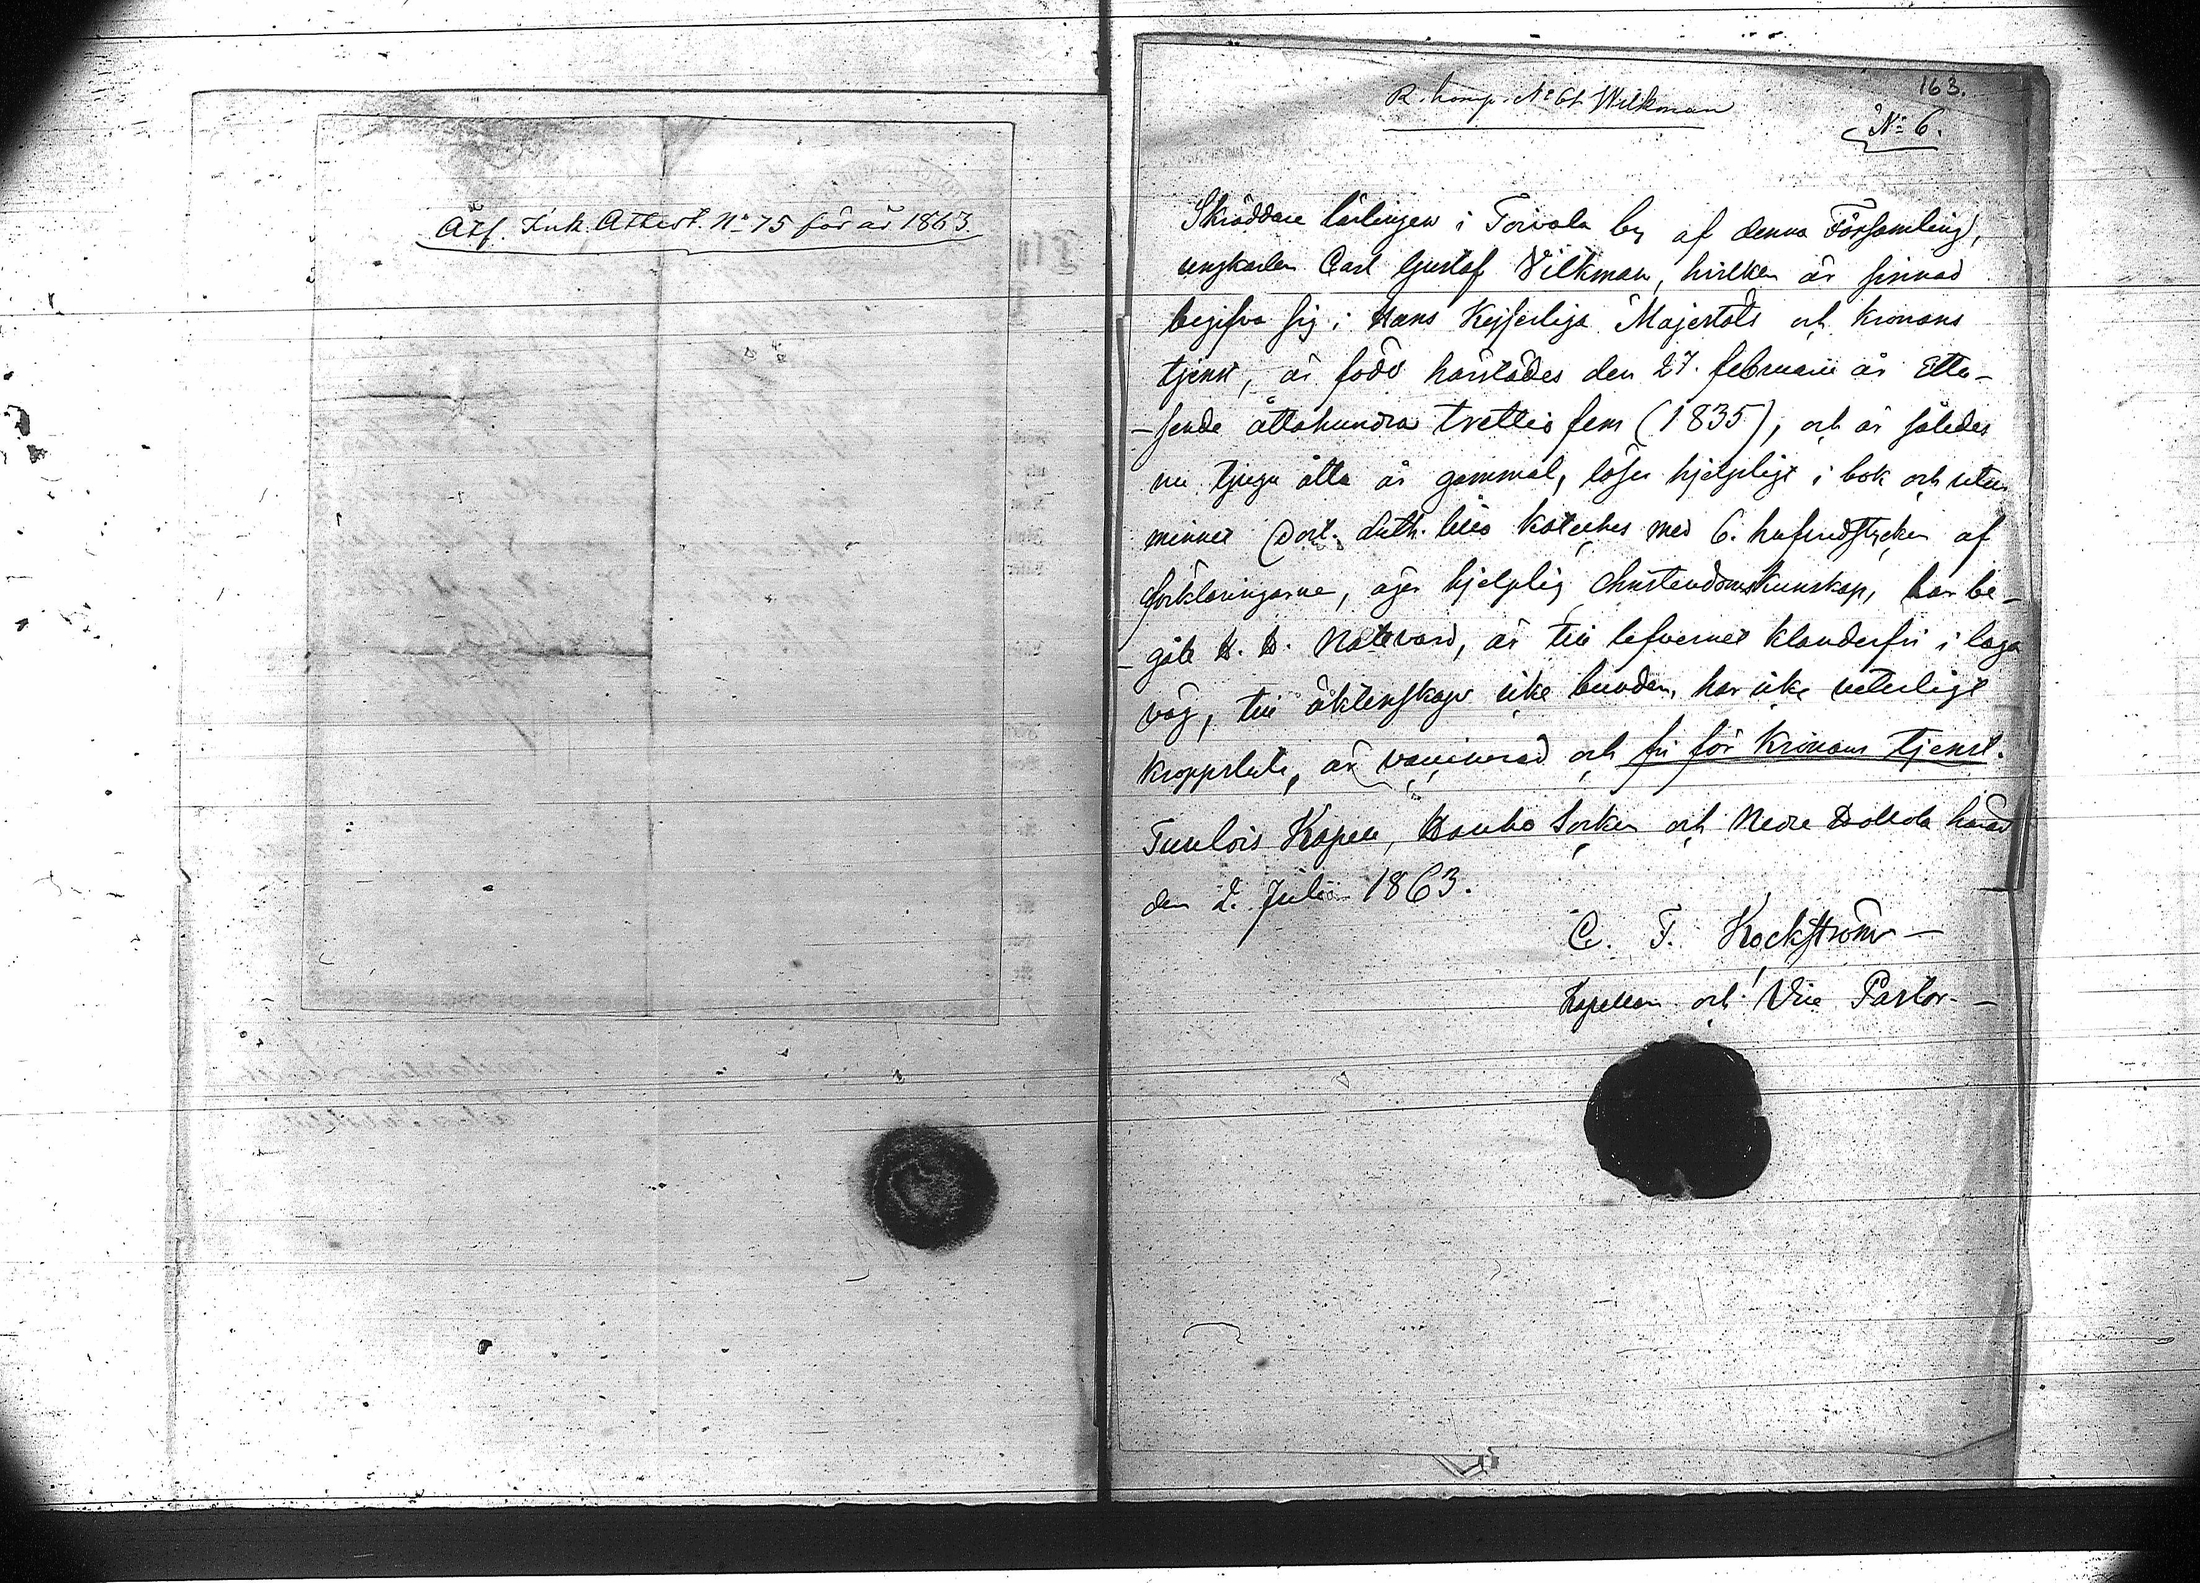 Att. Ink. Attest. No 75 för år 1863.
163.
R. komp. No 61 Wilkman
No 6.
Skräddare lärlingen i Torvola by af denna Församling,
ungkarlen Carl Gustaf Vilkman, hvilken är sinnad
begifva sig i Hans Kejserliga Majestäts och Kronans
tjenst, är född härstädes den 27. februarii år Ettu-
-sende åttahundra trettio fem (1835), och är således
nu tjugu åtta år gammal, läser hjelpligt i bok och utur
minnet Doct. Luth. lilla Kateches med 6. hufvudstycken af
förklaringarne, äger hjelplig christendomskunskap, har be-
-gått H. H. Nattvard, är till lefvernet klanderfri i laga
väg, till äktenskap icke bunden, har icke veterligt
kroppslyte, är vaccinerad och fri för Kronans tjenst.
Tuulois Kapell, Hauho Socken och Nedre Hollola härad
den 2. Julii 1863.
C. F. Kockström
Kapellan och Vice Pastor